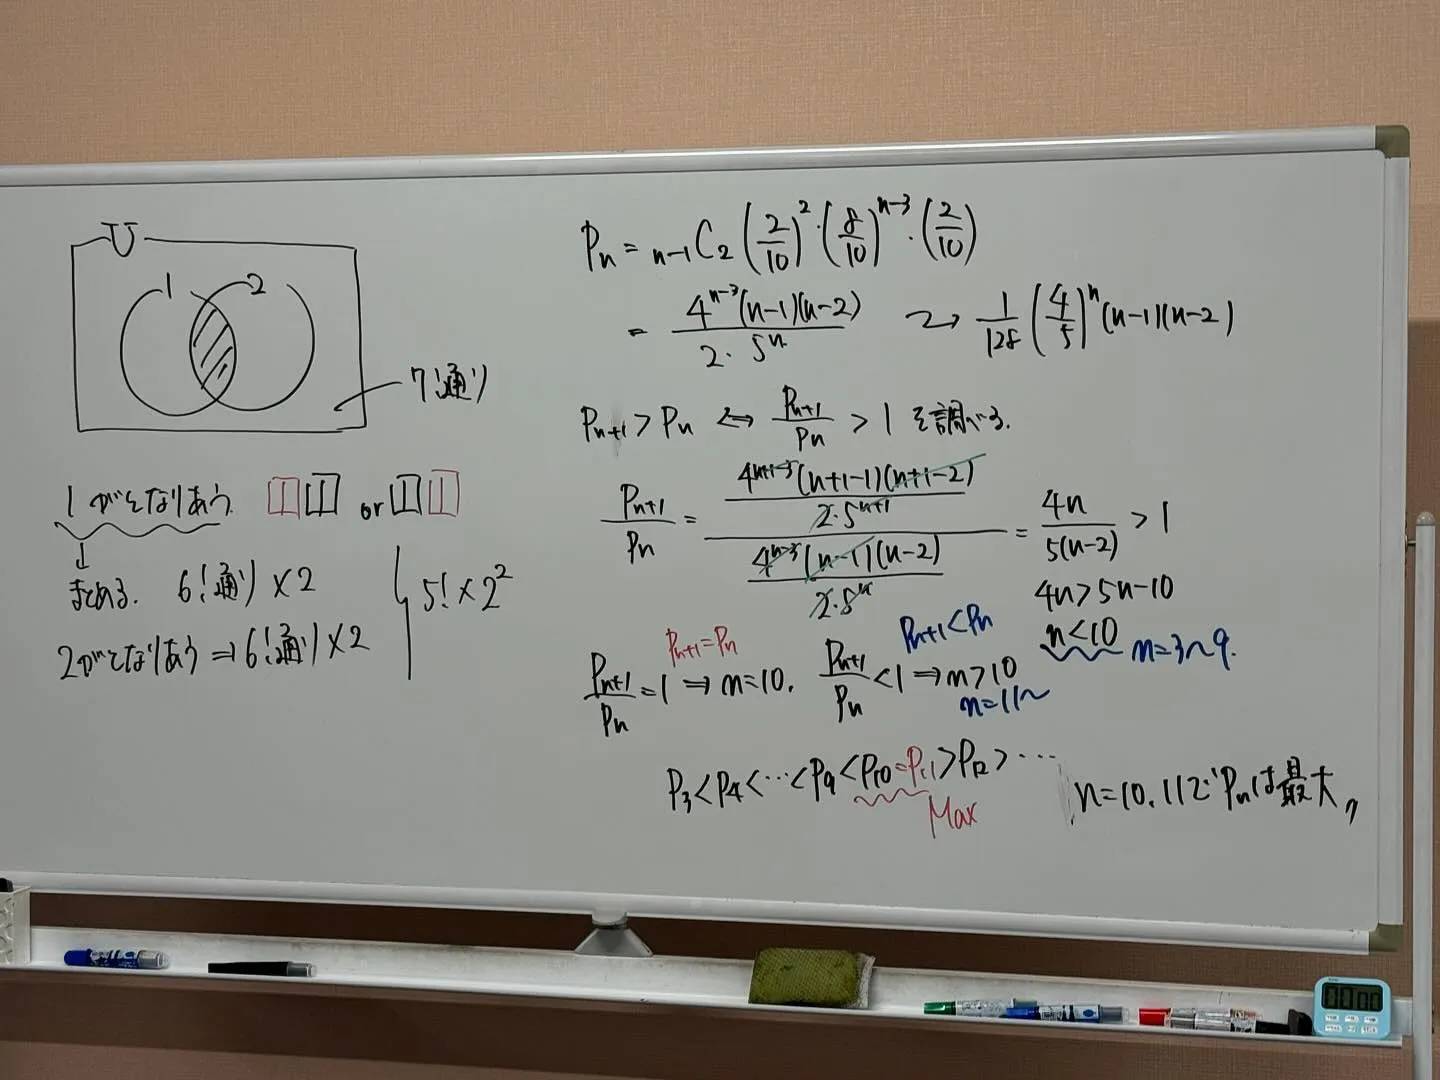 U
1 2
7!通り
1がとなりあう 1 1 or 1 1
↓
まとめる. 6!通り×2
5!×2²
2がとなりあう⇒6!通り×2
Pn = n-1C2 (2/10)²・(8/10)^(n-3)・(2/10)
= 4^(n-3)(n-1)(n-2) / 2・5^n → 1/128 (4/5)^n (n-1)(n-2)
Pn+1 > Pn ⇔ Pn+1/Pn > 1 を調べる.
Pn+1/Pn = (4^(n+1-3)(n+1-1)(n+1-2) / 2・5^(n+1)) / (4^(n-3)(n-1)(n-2) / 2・5^n) = 4n / 5(n-2) > 1
4n > 5n-10
n < 10 n=3~9.
Pn+1=Pn
Pn+1/Pn = 1 ⇒ n=10.
Pn+1<Pn
Pn+1/Pn < 1 ⇒ n>10
n=11~
P3<P4<…<P9<P10=P11>P12>…
Max
n=10,11でPnは最大〃